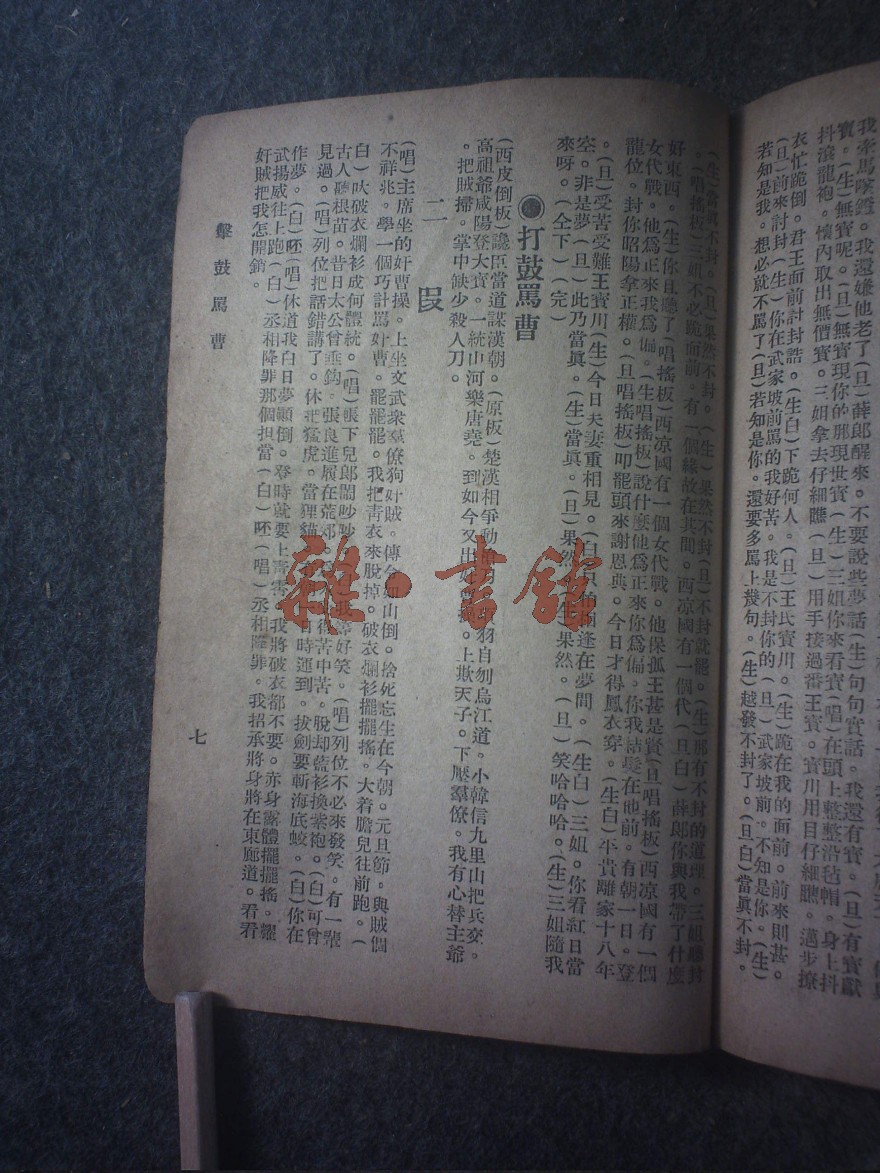 我牽馬墜鐙。我還嫌他老了(旦)薛郎醒來。不要說些夢話(生)句句實話。我還有寶。(旦)有寶獻
寶。(生)無寶呢。(旦)無寶現你的那現世寶(生)三姐你來看寶(唱)在頭上整整沿毡帽。身上抖
抖滾龍袍。懷內取出無價寶。三姐拿去仔細瞧(旦)用手接過番王寶。寶川用目仔細瞧。邁步撩
衣忙跪倒。君王面前討封誥。(生白)下跪何人。(旦)王氏寶川。(生)跪在我的面前。前來則甚。
(旦)前來討封(生)你在武家坡前罵的我好苦。我是不封你的(旦)武家坡前。不知是你。(生)
若知是我。想必就不罵了(旦)若知是你。還要多罵上幾句。(生)越發不封了。(旦白)當眞不封。
(生)當眞不封。(旦)果然不封。(生)果然不封(旦)不封就罷。(生)那有不封的道理。三姐聽封
。(唱搖板)三姐不必跪面前。有一個緣故在其間。西凉國有一個代(旦白)薛郎你與我帶了什麽
好東西。(生)你且聽了(唱搖板)西凉國有一個女代戰。他保孤王甚是賢(旦唱搖板)西凉國有一個
女代戰。他爲正來我爲偏。(生唱搖板)說什麽他爲正來你爲偏。你我結髮在他前。有朝一日。登
龍位。封你昭陽拿正權。(旦唱搖板)叩罷頭來謝恩典。今日才得鳳衣穿。(生白)平貴離家十八年
。(旦)受苦受難王寶川(生)今日夫妻重相見。(旦)只怕相逢在夢間。(生白)三姐。你看紅日當
空。非是夢(旦)此乃當眞。(生)當眞。(旦)果然(生)果然。(旦)笑哈哈哈。(生)三姐隨我
來呀。(仝下)(完)
●打鼓罵曹
(西皮倒板)讒臣當道謀漢朝。(原板)楚漢相爭動槍刀。羽自刎烏江道。小韓信九里山把兵交。
高祖爺咸陽登大寶。一統山河樂唐堯。到如今又出奸曹操。上欺天子。下壓羣僚。我有心替主爺
。把賊掃。掌中缺少殺人刀。
二段
(唱)主席坐的奸曹操。上坐文武衆羣僚狗奸賊。傳令如山倒。捨死忘生在今朝。元旦節。與賊個
不祥兆。學一個巧計罵奸曹。罷罷罷。我把青衣來脫掉。破衣爛衫擺擺搖。大着膽兒往前跑。(
白)吠破衣爛衫成何體統。(唱)帳下兒郎鬧吵吵。等好笑。(唱)列位不必來發笑。有一輩
古人聽根苗。昔日太公曾垂釣。張良進履在荒郊。得苦中苦。脫却藍衫換紫袍。(白)可曾
見過。(唱)列位把話錯講了。休把猛虎。當狸貓。有時運到。拔劍要斬海底蛟。(白)你在
作夢。(白)呸(唱)休道我白日夢顚倒。登時就要上靑霄。我將破衣都不要。赤身露體擺擺搖。耀
武揚威往上跑(白)丞相降罪那個担當(白)呸(唱)丞相降罪。我招承將身將在東廊道。看看
奸賊把我怎開銷。
擊鼓罵曹
七
雜·書館